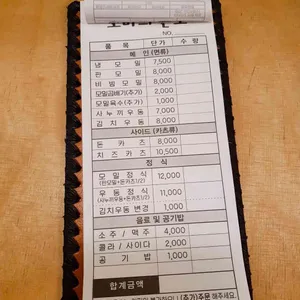 NO.
품 목 단 가 수 량
메 인 (면류)
냉 모 밀 7,500
판 모 밀 8,000
비 빔 모 밀 8,000
모밀곱배기(추가) 2,000
모밀육수(추가) 1,000
사누끼우동 7,000
김 치 우 동 8,000
사이드 (카츠류)
돈 카 츠 8,000
치 즈 카 츠 10,500
정 식
모 밀 정 식 12,000
(판모밀+돈카츠1/2)
우 동 정 식 11,000
(사누끼우동+돈카츠1/2)
김치우동 변경 1,000
음료 및 공기밥
소 주 / 맥 주 4,000
콜 라 / 사 이 다 2,000
공 기 밥 1,000
합계금액
(추가)주문 해주세요